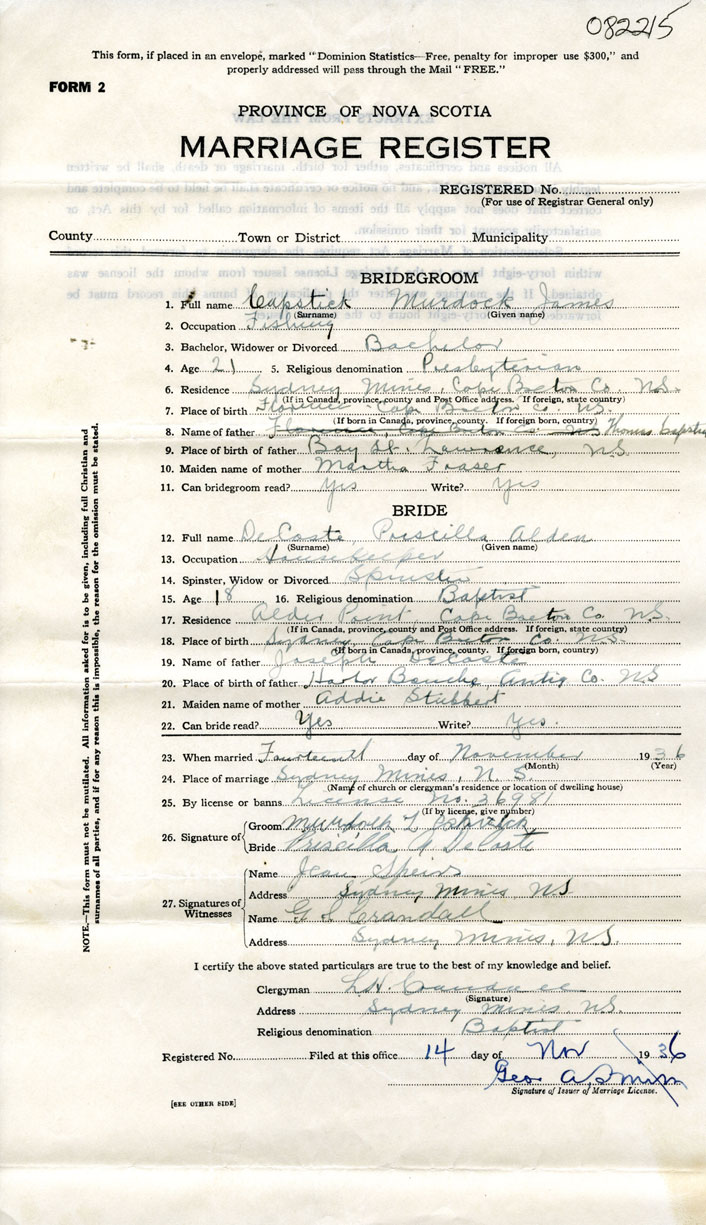 082215
This form, if placed in an envelope, marked "Dominion Statistics—Free, penalty for improper use $300," and
properly addressed will pass through the Mail "FREE."
FORM 2
PROVINCE OF NOVA SCOTIA
MARRIAGE REGISTER
REGISTERED No.
(For use of Registrar General only)
County Town or District Municipality
BRIDEGROOM
1. Full name Capstick Murdock James
(Surname) (Given name)
2. Occupation Fishing
3. Bachelor, Widower or Divorced Bachelor
4. Age 21 5. Religious denomination Presbyterian
6. Residence Sydney Mines, Cape Breton Co. N.S.
(If in Canada, province, county and Post Office address. If foreign, state country)
7. Place of birth Florence Cape Breton Co. N.S.
(If born in Canada, province, county. If foreign born, country)
8. Name of father Florence, Cape Breton Co. N.S. Thomas Capstick
9. Place of birth of father Bay St. Lawrence, N.S.
10. Maiden name of mother Martha Fraser
11. Can bridegroom read? Yes Write? Yes
BRIDE
12. Full name DeCoste Priscilla Alden
(Surname) (Given name)
13. Occupation Housekeeper
14. Spinster, Widow or Divorced Spinster
15. Age 18 16. Religious denomination Baptist
17. Residence Alder Point, Cape Breton Co. N.S.
(If in Canada, province, county and Post Office address. If foreign, state country)
18. Place of birth Sydney, Cape Breton Co. N.S.
(If born in Canada, province, county. If foreign born, country)
19. Name of father Joseph DeCoste
20. Place of birth of father Harbor Bouche, Antig Co. N.S
21. Maiden name of mother Addie Stubbert
22. Can bride read? Yes Write? Yes.
23. When married Fourteenth day of November 1936
(Month) (Year)
24. Place of marriage Sydney Mines, N.S.
(Name of church or clergyman's residence or location of dwelling house)
25. By license or banns License No. 36981
(If by license, give number)
26. Signature of Groom Murdock
Bride Priscilla A DeCoste
27. Signatures of Witnesses
Name Jean Speirs
Address Sydney Mines N.S
Name G S Crandall
Address Sydney Mines, N.S.
I certify the above stated particulars are true to the best of my knowledge and belief.
Clergyman
(Signature)
Address Sydney Mines N.S.
Religious denomination Baptist
Registered No. Filed at this office 14 day of Nov 1936
Geo A
Signature of Issuer of Marriage License.
[SEE OTHER SIDE]
NOTE.—This form must not be mutilated. All information asked for is to be given, including full Christian and
surnames of all parties, and if for any reason this is impossible, the reason for the omission must be stated.